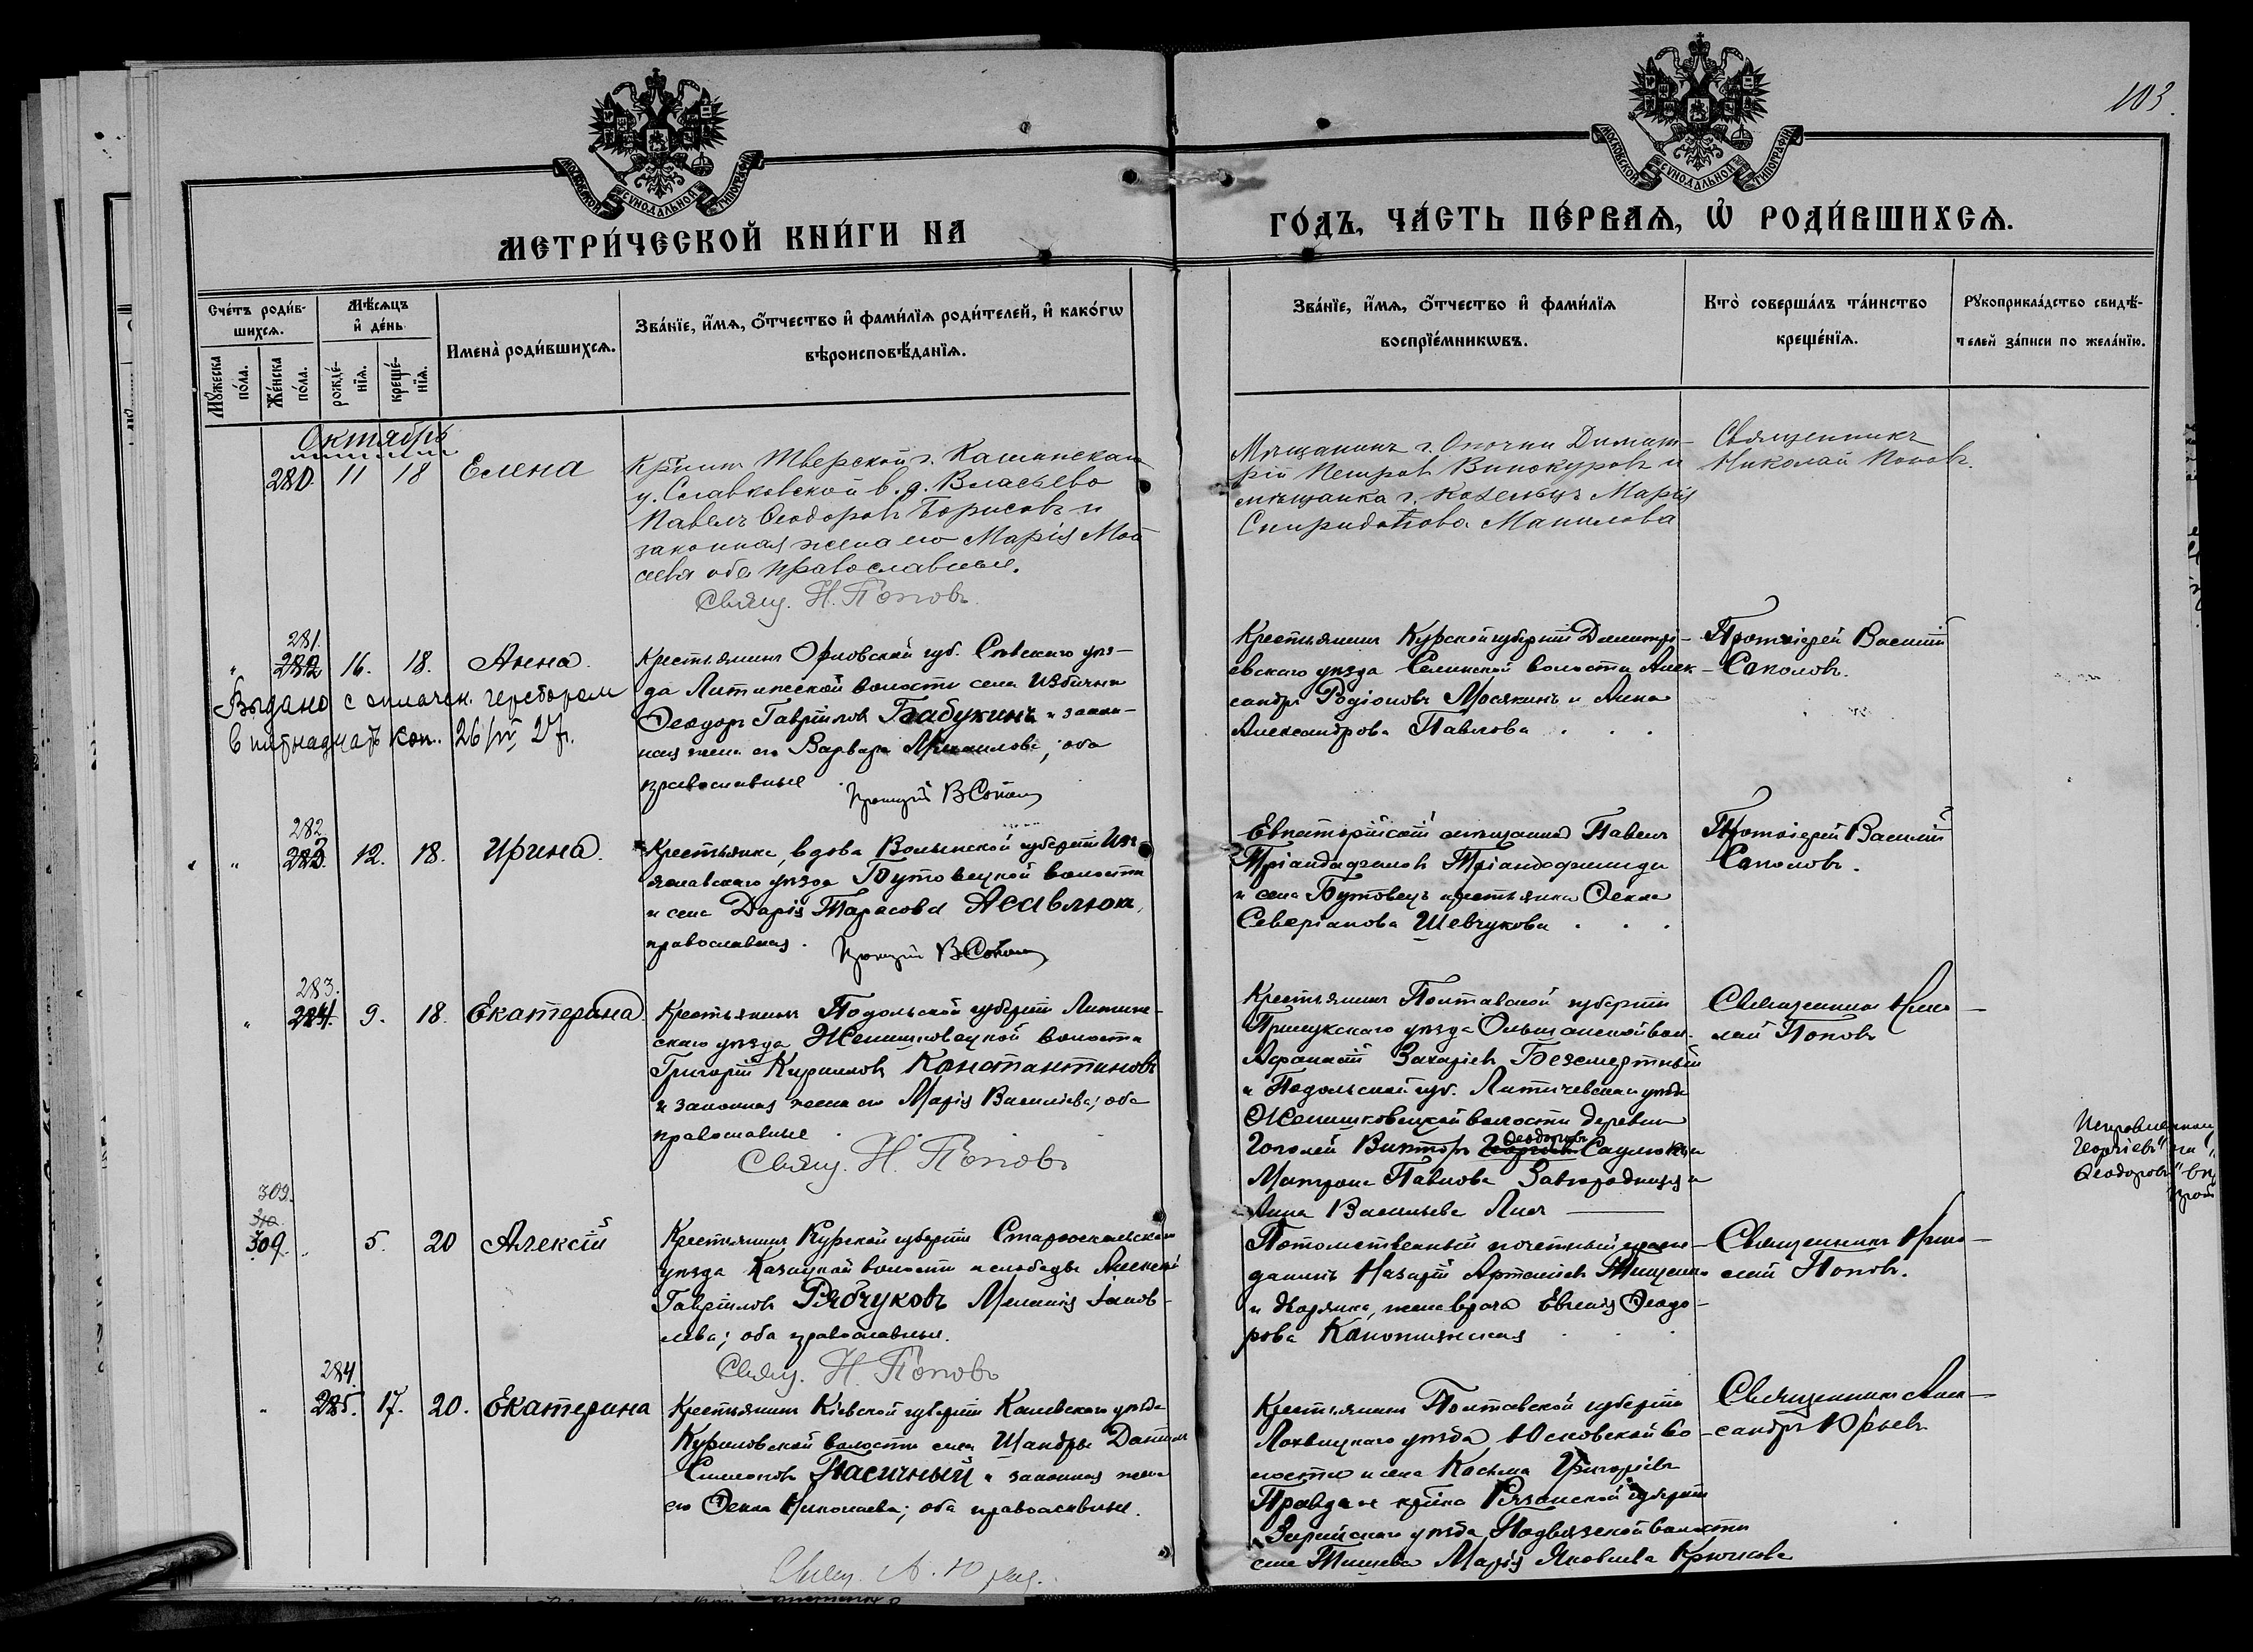 103.
МОСКОВСКОЙ СУНОДАЛЬНОЙ ТИПОГРАФІИ
МОСКОВСКОЙ СУНОДАЛЬНОЙ ТИПОГРАФІИ
МЕТРИ́ЧЕСКОЙ КНИ́ГИ НА
ГО́ДЪ, ЧА́СТЬ ПЕ́РВАѦ, Ѡ҆ РОДИ́ВШИХСѦ.
Сче́тъ роди́в-
шихсѧ.
Мꙋ́жеска по́ла.
Же́нска по́ла.
Мѣ́сѧцъ
и҆ де́нь
рожде́-
нїѧ.
креще́-
нїѧ.
Имена̀ роди́вшихсѧ.
Зва́нїе, и҆́мѧ, ѻ҆́тчество и҆ фами́лїѧ роди́телей, и҆ како́гѡ
вѣроисповѣ́данїѧ.
Зва́нїе, и҆́мѧ, ѻ҆́тчество и҆ фами́лїѧ
воспрїе́мникѡвъ.
Кто̀ соверша́лъ та́инство
креще́нїѧ.
Рꙋкоприкла́дство свидѣ́-
телей за́писи по жела́нїю.
Октябрь
280. 11 18 Елена
Кр̃нинъ Тверской г. Кашинскаго
у. Славковской в. д. Власьево
Павелъ Ѳеодоровъ Борисовъ и
законная жена его Марія Мои
сева оба православные.
Свящ. Н. Поповъ.
Мѣщанинъ г. Опочки Димит-
рій Петровъ Винокуровъ и
мѣщанка г. Козельцъ Марія
Спиридонова Манилова
Священникъ
Николай Поповъ.
281.
282 16. 18. Анна.
Выдано с оплачен. гербором
в пятнадцать коп. 26/IV 27 г.
Крестьянинъ Орловской губ. Сѣвскаго уѣз-
да Литижской волости села Избичня
Ѳеодоръ Гавріиловъ Бабукинъ и закон-
ная жена его Варвара Михаилова; оба
православные
Протоіерей В Соколовъ
Крестьянинъ Курской губерніи Димитрі-
евскаго уѣзда Селинской волости Алек-
сандръ Родіоновъ Мосякинъ и Анна
Александрова Павлова . . .
Протоіерей Василій
Соколовъ.
282.
283. 12. 18. Ирина.
Крестьянка, вдова Волынской губерніи Из-
яславскаго уѣзда Бутовецкой волости
и села Дарія Тарасова Асавлюк,
православная.
Протоіерей В Соколовъ
Евпаторійскій мѣщанинъ Павелъ
Тріандафиловъ Тріандафилиди
и села Бутовецъ крестьянка Ѳекла
Северіанова Шевчукова . . .
Протоіерей Василій
Соколовъ.
283.
284. 9. 18. Екатерина.
Крестьянинъ Подольской губерніи Литин-
скаго уѣзда Женишковецкой волости
Григорій Кирилловъ Константиновъ
и законная жена его Марія Василіева; оба
православные
Свящ. Н. Поповъ
Крестьянинъ Полтавской губерніи
Прилукскаго уѣзда Ольшанской вол.
Аѳанасій Захаріевъ Безсмертный
и Подольской губ. Литичевскаго уѣзда
Женишковецкой волости деревни
Гоголей Викторъ Георгіевъ Ѳеодоровъ Саулюкъ и
Матрона Павлова Завгородняя и
Анна Васильева Лисъ
Священникъ Нико-
лай Поповъ
Исправленному
"Георгіевъ" на
"Ѳеодоровъ"
309.
310.
309. 5. 20 Алексій
Крестьянинъ Курской губерніи Старооскольскаго
уѣзда Казацкой волости и слободы Алексѣй
Гавріиловъ Рябчуковъ Меланія Іаков-
лева; оба православные.
Свящ. Н. Поповъ
Потомственный почетный граж-
данинъ Назарій Артеміевъ Тищенко
и дворянка, жена врача Евгенія Ѳеодо-
рова
Священникъ Нико-
лай Поповъ.
284.
285. 17. 20. Екатерина
Крестьянинъ Кіевской губерніи Каневскаго уѣзда
Куриловской волости села Шандры Даніилъ
Симеоновъ Пасичный и законная жена
его Ѳекла Николаева; оба православные.
Свящ. А. Юрьев.
Крестьянинъ Полтавской губерніи
Лохвицкаго уѣзда Юсковской во-
лости и села Косьма Григорьевъ
Правда и кр̃нка Рязанской губерніи
уѣзда Подвязской волости
села Тишева Марія Яковлева Крючкова
Священникъ Алек-
сандръ Юрьевъ